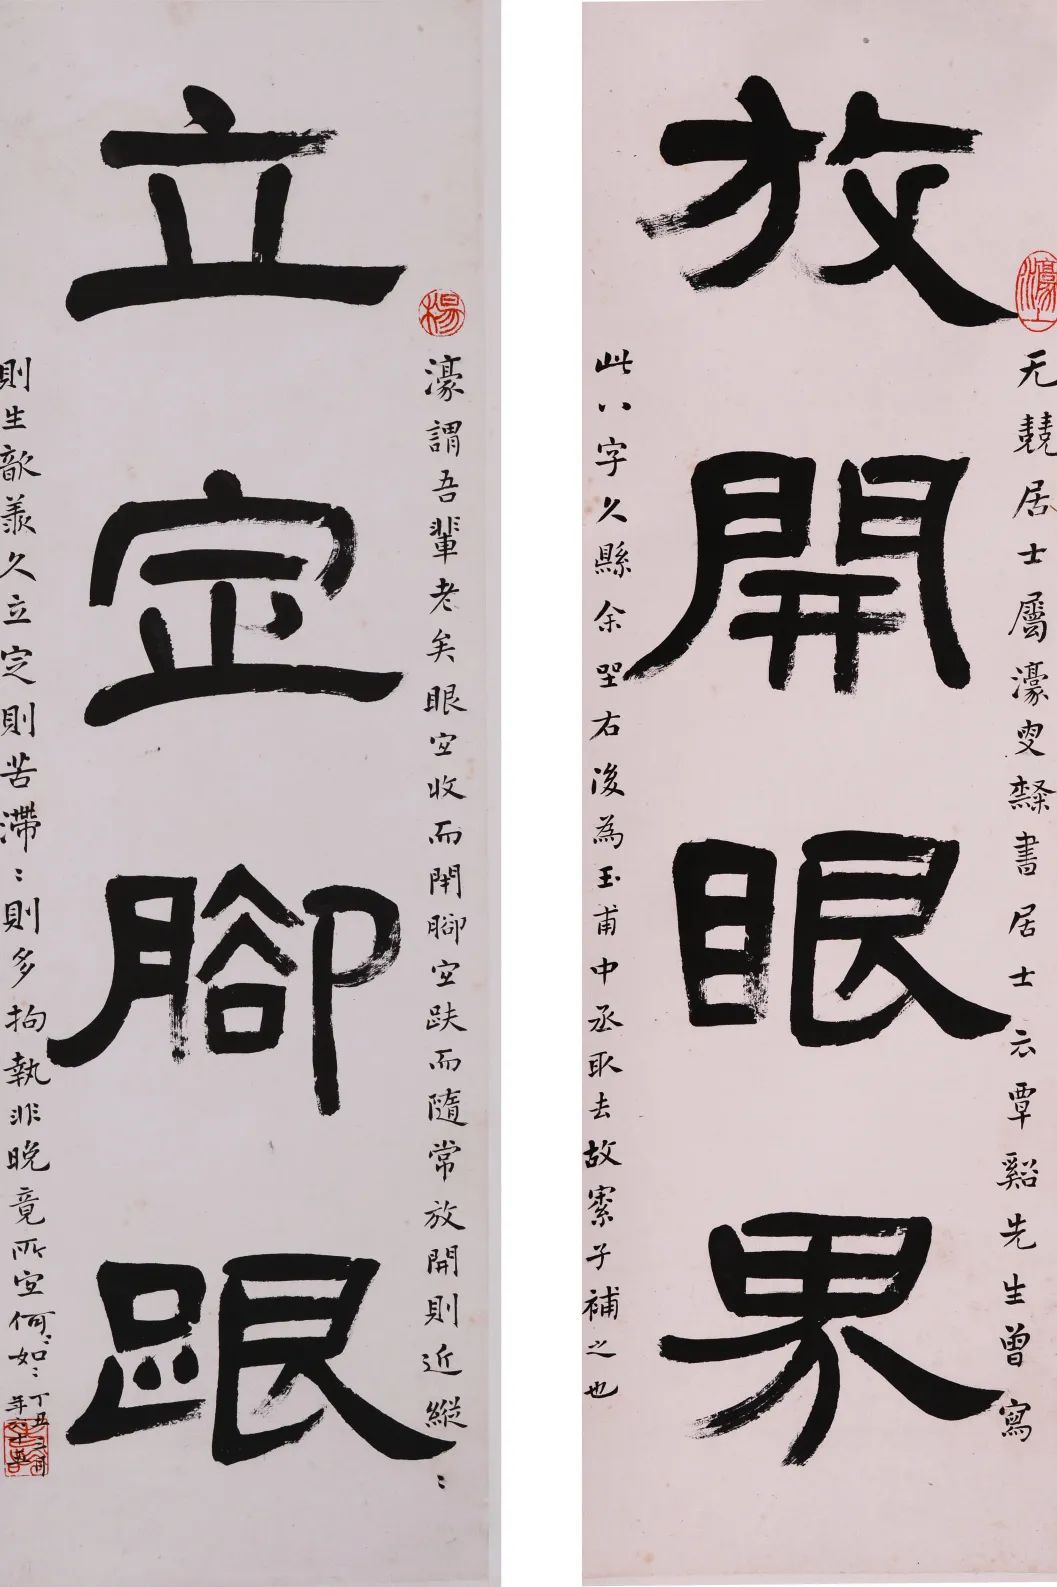 放開眼界
无競居士屬濠叟隸書居士云覃谿先生曾寫
此八字久縣余坐右後為玉甫中丞取去故索子補之也
立定腳跟
濠謂吾輩老矣眼宜收而閉腳宜趺而隨常放開則近縱〻
則生歆羨久立定則苦滯〻則多拘執非晚竟所宜何〻如〻
丁丑三月
年六十